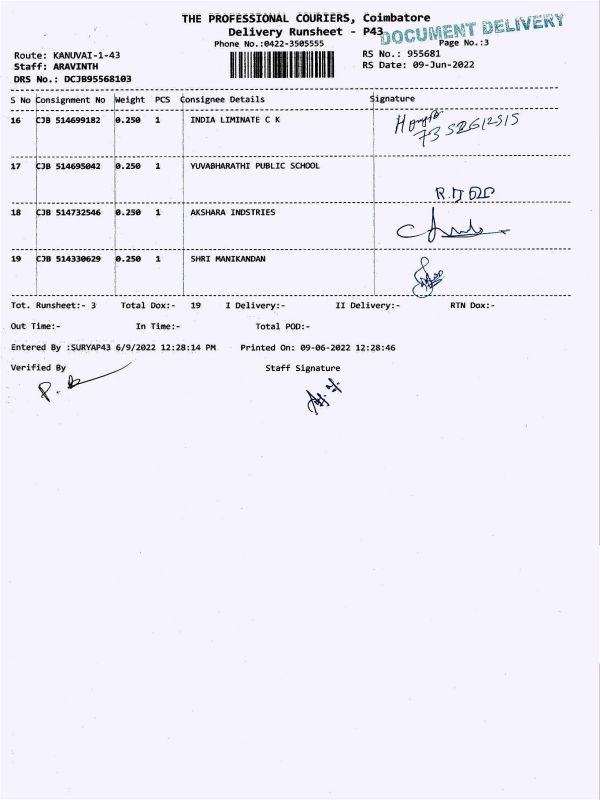 THE PROFESSIONAL COURIERS, Coimbatore
Delivery Runsheet - P43
DOCUMENT DELIVERY
Phone No.:0422-3505555
Page No.:3
Route: KANUVAI-1-43
RS No.: 955681
Staff: ARAVINTH
RS Date: 09-Jun-2022
DRS No.: DCJB95568103
S No Consignment No Weight PCS Consignee Details Signature
16 CJB 514699182 0.250 1 INDIA LIMINATE C K
17 CJB 514695042 0.250 1 YUVABHARATHI PUBLIC SCHOOL
18 CJB 514732546 0.250 1 AKSHARA INDSTRIES
19 CJB 514330629 0.250 1 SHRI MANIKANDAN
Tot. Runsheet:- 3 Total Dox:- 19 I Delivery:- II Delivery:- RTN Dox:-
Out Time:- In Time:- Total POD:-
Entered By :SURYAP43 6/9/2022 12:28:14 PM Printed On: 09-06-2022 12:28:46
Verified By Staff Signature